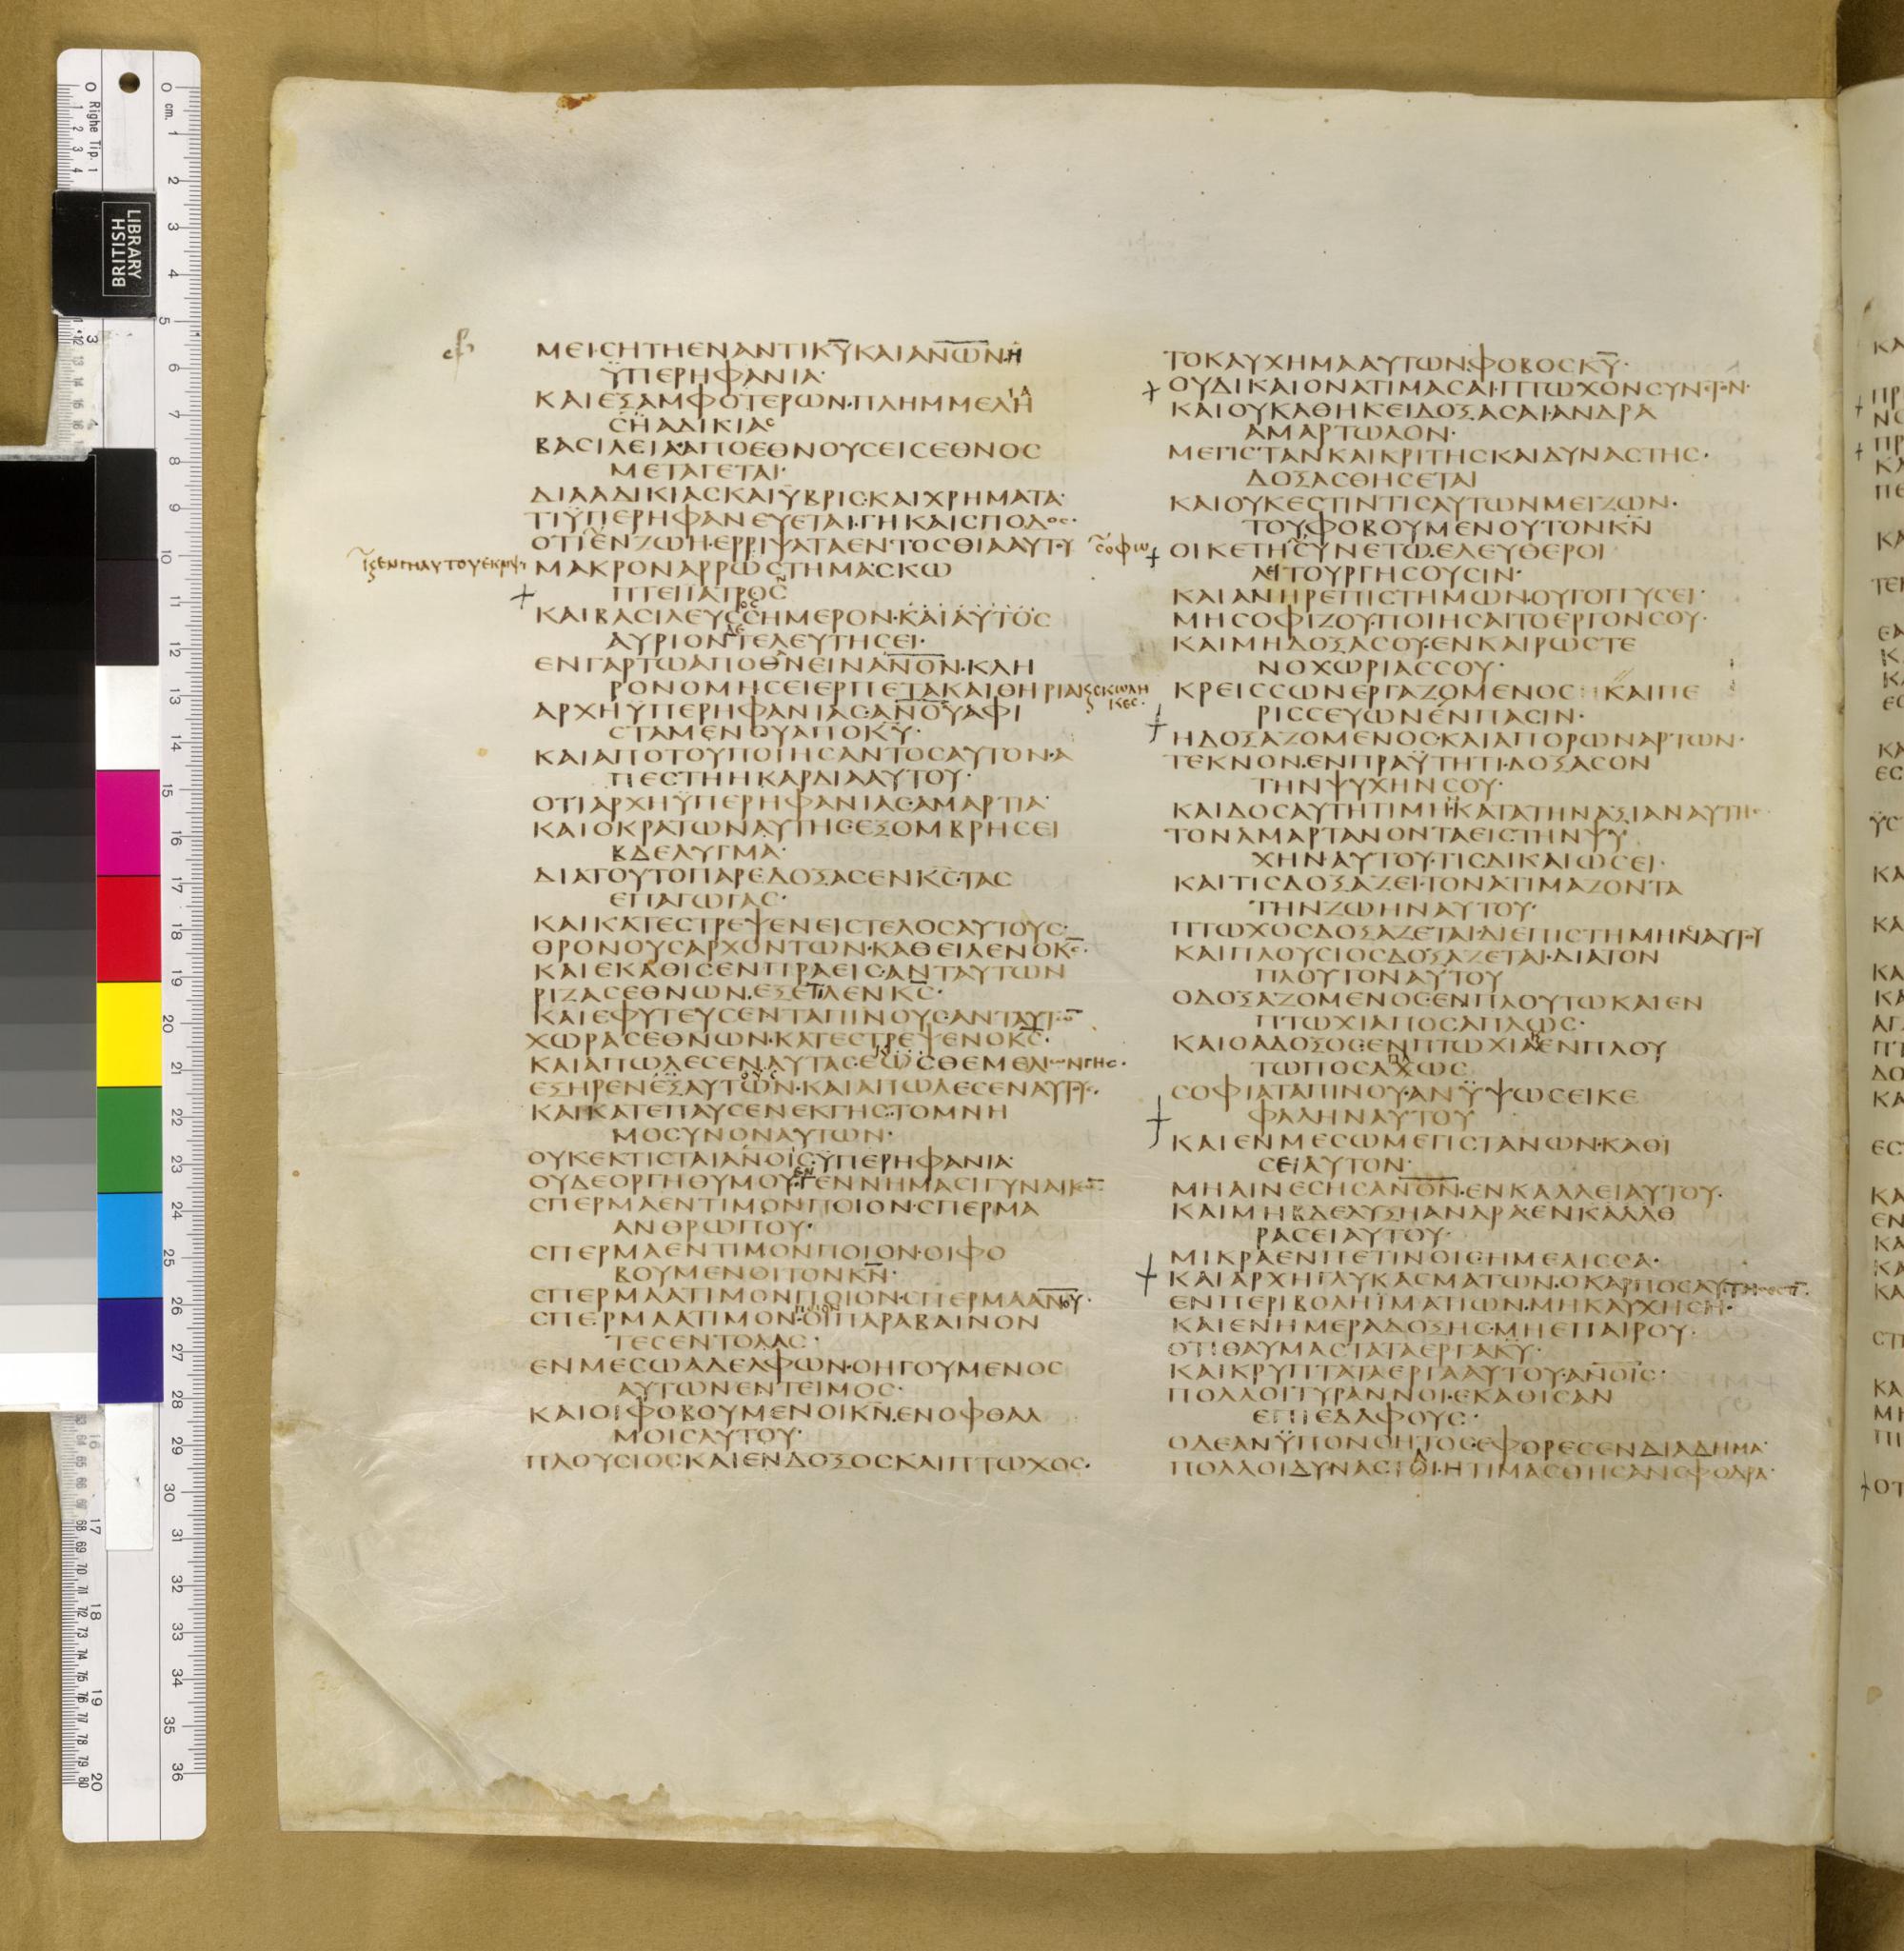 ΜΕΙΣΗΤΗΕΝΑΝΤΙΚΥΚΑΙΑΝΩΝΗ
ΫΠΕΡΗΦΑΝΙΑ·
ΚΑΙΕΞΑΜΦΟΤΕΡΩΝ·ΠΛΗΜΜΕΛΗ
ϹΗΑΔΙΚΙΑ
ΒΑϹΙΛΕΙΑ·ΑΠΟΕΘΝΟΥϹΕΙϹΕΘΝΟϹ
ΜΕΤΑΓΕΤΑΙ·
ΔΙΑΑΔΙΚΙΑϹΚΑΙΫΒΡΙϹ·ΚΑΙΧΡΗΜΑΤΑ·
ΤΙΫΠΕΡΗΦΑΝΕΥΕΤΑΙ·ΓΗΚΑΙϹΠΟΔΟϹ·
ΟΤΙΕΝΖΩΗ·ΕΡΡΙΨΑΤΑΕΝΤΟϹΘΙΑΑΥΤΥ
ΜΑΚΡΟΝΑΡΡΩϹΤΗΜΑϹΚΩ
ΚΑΙΒΑϹΙΛΕΥϹϹΗΜΕΡΟΝ·ΚΑΙΑΥΤΟϹ
ΑΥΡΙΟΝΤΕΛΕΥΤΗϹΕΙ·
ΕΝΓΑΡΤΩΑΠΟΘΝΕΙΝΑΝΟΝ·ΚΛΗ
ΡΟΝΟΜΗϹΕΙΕΡΠΕΤΑΚΑΙΘΗΡΙΑ
ΑΡΧΗΫΠΕΡΗΦΑΝΙΑϹ·ΑΝΟΥΑΦΙ
ϹΤΑΜΕΝΟΥΑΠΟΚΥ·
ΚΑΙΑΠΟΤΟΥΠΟΙΗϹΑΝΤΟϹΑΥΤΟΝ·Α
ΠΕϹΤΗΗΚΑΡΔΙΑΑΥΤΟΥ·
ΟΤΙΑΡΧΗΫΠΕΡΗΦΑΝΙΑϹ·ΑΜΑΡΤΙΑ·
ΚΑΙΟΚΡΑΤΩΝΑΥΤΗϹ·ΕΞΟΜΒΡΗϹΕΙ
ΒΔΕΛΥΓΜΑ·
ΔΙΑΤΟΥΤΟΠΑΡΕΔΟΞΑϹΕΝΚϹ·ΤΑϹ
ΕΠΑΓΩΓΑϹ·
ΚΑΙΚΑΤΕϹΤΡΕΨΕΝΕΙϹΤΕΛΟϹΑΥΤΟΥϹ·
ΘΡΟΝΟΥϹΑΡΧΟΝΤΩΝ·ΚΑΘΕΙΛΕΝΟΚϹ·
ΚΑΙΕΚΑΘΙϹΕΝΠΡΑΕΙϹ·ΑΝΤΑΥΤΩΝ
ΡΙΖΑϹΕΘΝΩΝ·ΕΞΕΤΙΛΕΝΚϹ·
ΚΑΙΕΦΥΤΕΥϹΕΝΤΑΠΙΝΟΥϹΑΝΤΑΥΤΩ
ΧΩΡΑϹΕΘΝΩΝ·ΚΑΤΕϹΤΡΕΨΕΝΟΚϹ·
ΚΑΙΑΠΩΛΕϹΕΝΑΥΤΑϹ·ΕΩϹΘΕΜΕΛΙΩΝΓΗϹ·
ΕΞΗΡΕΝΕΞΑΥΤΩΝ·ΚΑΙΑΠΩΛΕϹΕΝΑΥΤΥ·
ΚΑΙΚΑΤΕΠΑΥϹΕΝΕΚΓΗϹ·ΤΟΜΝΗ
ΜΟϹΥΝΟΝΑΥΤΩΝ·
ΟΥΚΕΚΤΙϹΤΑΙΑΝΟΙϹ·ΫΠΕΡΗΦΑΝΙΑ·
ΟΥΔΕΟΡΓΗΘΥΜΟΥ·ΓΕΝΝΗΜΑϹΙΓΥΝΑΙΚΩ
ϹΠΕΡΜΑΕΝΤΙΜΟΝΠΟΙΟΝ·ϹΠΕΡΜΑ
ΑΝΘΡΩΠΟΥ·
ϹΠΕΡΜΑΕΝΤΙΜΟΝΠΟΙΟΝ·ΟΙΦΟ
ΒΟΥΜΕΝΟΙΤΟΝΚΝ·
ϹΠΕΡΜΑΑΤΙΜΟΝΠΟΙΟΝ·ϹΠΕΡΜΑΑΝΟΥ·
ϹΠΕΡΜΑΑΤΙΜΟΝ·ΟΙΠΑΡΑΒΑΙΝΟΝ
ΤΕϹΕΝΤΟΛΑϹ·
ΕΝΜΕϹΩΑΔΕΛΦΩΝ·ΟΗΓΟΥΜΕΝΟϹ
ΑΥΤΩΝΕΝΤΕΙΜΟϹ·
ΚΑΙΟΙΦΟΒΟΥΜΕΝΟΙΚΝ·ΕΝΟΦΘΑΛ
ΜΟΙϹΑΥΤΟΥ·
ΠΛΟΥϹΙΟϹΚΑΙΕΝΔΟΞΟϹΚΑΙΠΤΩΧΟϹ·
ΤΟΚΑΥΧΗΜΑΑΥΤΩΝ·ΦΟΒΟϹΚΥ·
ΟΥΔΙΚΑΙΟΝΑΤΙΜΑϹΑΙ·ΠΤΩΧΟΝϹΥΝΕΤΟΝ·
ΚΑΙΟΥΚΑΘΗΚΕΙΔΟΞΑϹΑΙ·ΑΝΔΡΑ
ΑΜΑΡΤΩΛΟΝ·
ΜΕΓΙϹΤΑΝΚΑΙΚΡΙΤΗϹΚΑΙΔΥΝΑϹΤΗϹ·
ΔΟΞΑϹΘΗϹΕΤΑΙ
ΚΑΙΟΥΚΕϹΤΙΝΤΙϹΑΥΤΩΝΜΕΙΖΩΝ·
ΤΟΥΦΟΒΟΥΜΕΝΟΥΤΟΝΚΝ
ΟΙΚΕΤΗϹΥΝΕΤΩ·ΕΛΕΥΘΕΡΟΙ
ΛΙΤΟΥΡΓΗϹΟΥϹΙΝ·
ΚΑΙΑΝΗΡΕΠΙϹΤΗΜΩΝ·ΟΥΓΟΓΓΥϹΕΙ·
ΜΗϹΟΦΙΖΟΥ·ΠΟΙΗϹΑΙΤΟΕΡΓΟΝϹΟΥ·
ΚΑΙΜΗΔΟΞΑϹΟΥ·ΕΝΚΑΙΡΩϹΤΕ
ΝΟΧΩΡΙΑϹϹΟΥ·
ΚΡΕΙϹϹΩΝΕΡΓΑΖΟΜΕΝΟϹ ΚΑΙΠΕ
ΡΙϹϹΕΥΩΝΕΝΠΑϹΙΝ·
ΗΔΟΞΑΖΟΜΕΝΟϹ·ΚΑΙΑΠΟΡΩΝΑΡΤΩΝ·
ΤΕΚΝΟΝ·ΕΝΠΡΑΫΤΗΤΙ·ΔΟΞΑϹΟΝ
ΤΗΝΨΥΧΗΝϹΟΥ·
ΚΑΙΔΟϹΑΥΤΗΤΙΜΗΝΚΑΤΑΤΗΝΑΞΙΑΝΑΥΤΗϹ
ΤΟΝΑΜΑΡΤΑΝΟΝΤΑΕΙϹΤΗΝΨΥ
ΧΗΝΑΥΤΟΥ·ΤΙϹΔΙΚΑΙΩϹΕΙ·
ΚΑΙΤΙϹΔΟΞΑΖΕΙ·ΤΟΝΑΤΙΜΑΖΟΝΤΑ
ΤΗΝΖΩΗΝΑΥΤΟΥ·
ΠΤΩΧΟϹΔΟΞΑΖΕΤΑΙ·ΔΙΕΠΙϹΤΗΜΗΝΑΥΤΥ
ΚΑΙΠΛΟΥϹΙΟϹΔΟΞΑΖΕΤΑΙ·ΔΙΑΤΟΝ
ΠΛΟΥΤΟΝΑΥΤΟΥ
ΟΔΟΞΑΖΟΜΕΝΟϹΕΝΠΛΟΥΤΩΚΑΙΕΝ
ΠΤΩΧΙΑΠΟϹΑΠΛΩϹ·
ΚΑΙΟΑΔΟΞΟϹΕΝΠΤΩΧΙΑΕΝΠΛΟΥ
ΤΩΠΟϹΑΧΩϹ
ϹΟΦΙΑΤΑΠΙΝΟΥ·ΑΝΫΨΩϹΕΙΚΕ
ΦΑΛΗΝΑΥΤΟΥ
ΚΑΙΕΝΜΕϹΩΜΕΓΙϹΤΑΝΩΝ·ΚΑΘΙ
ϹΕΙΑΥΤΟΝ·
ΜΗΑΙΝΕϹΗϹΑΝΟΝ·ΕΝΚΑΛΛΕΙΑΥΤΟΥ·
ΚΑΙΜΗΒΔΕΛΥΞΗΑΝΔΡΑ·ΕΝΚΑΛΛΘ
ΡΑϹΕΙΑΥΤΟΥ·
ΜΙΚΡΑΕΝΠΕΤΙΝΟΙϹ·ΗΜΕΛΙϹϹΑ·
ΚΑΙΑΡΧΗΓΛΥΚΑϹΜΑΤΩΝ·ΟΚΑΡΠΟϹΑΥΤΗϹ
ΕΝΠΕΡΙΒΟΛΗΪΜΑΤΙΩΝ·ΜΗΚΑΥΧΗϹΗ·
ΚΑΙΕΝΗΜΕΡΑΔΟΞΗϹ·ΜΗΕΠΑΙΡΟΥ·
ΟΤΙΘΑΥΜΑϹΤΑΤΑΕΡΓΑΚΥ·
ΚΑΙΚΡΥΠΤΑΤΑΕΡΓΑΑΥΤΟΥ·ΑΝΟΙϹ·
ΠΟΛΛΟΙΤΥΡΑΝΝΟΙ·ΕΚΑΘΙϹΑΝ
ΕΠΙΕΔΑΦΟΥϹ·
ΟΔΕΑΝΫΠΟΝΟΗΤΟϹ·ΕΦΟΡΕϹΕΝΔΙΑΔΗΜΑ·
ΠΟΛΛΟΙΔΥΝΑϹΤΑΙ·ΗΤΙΜΑϹΘΗϹΑΝϹΦΟΔΡΑ·
BRITISH
LIBRARY